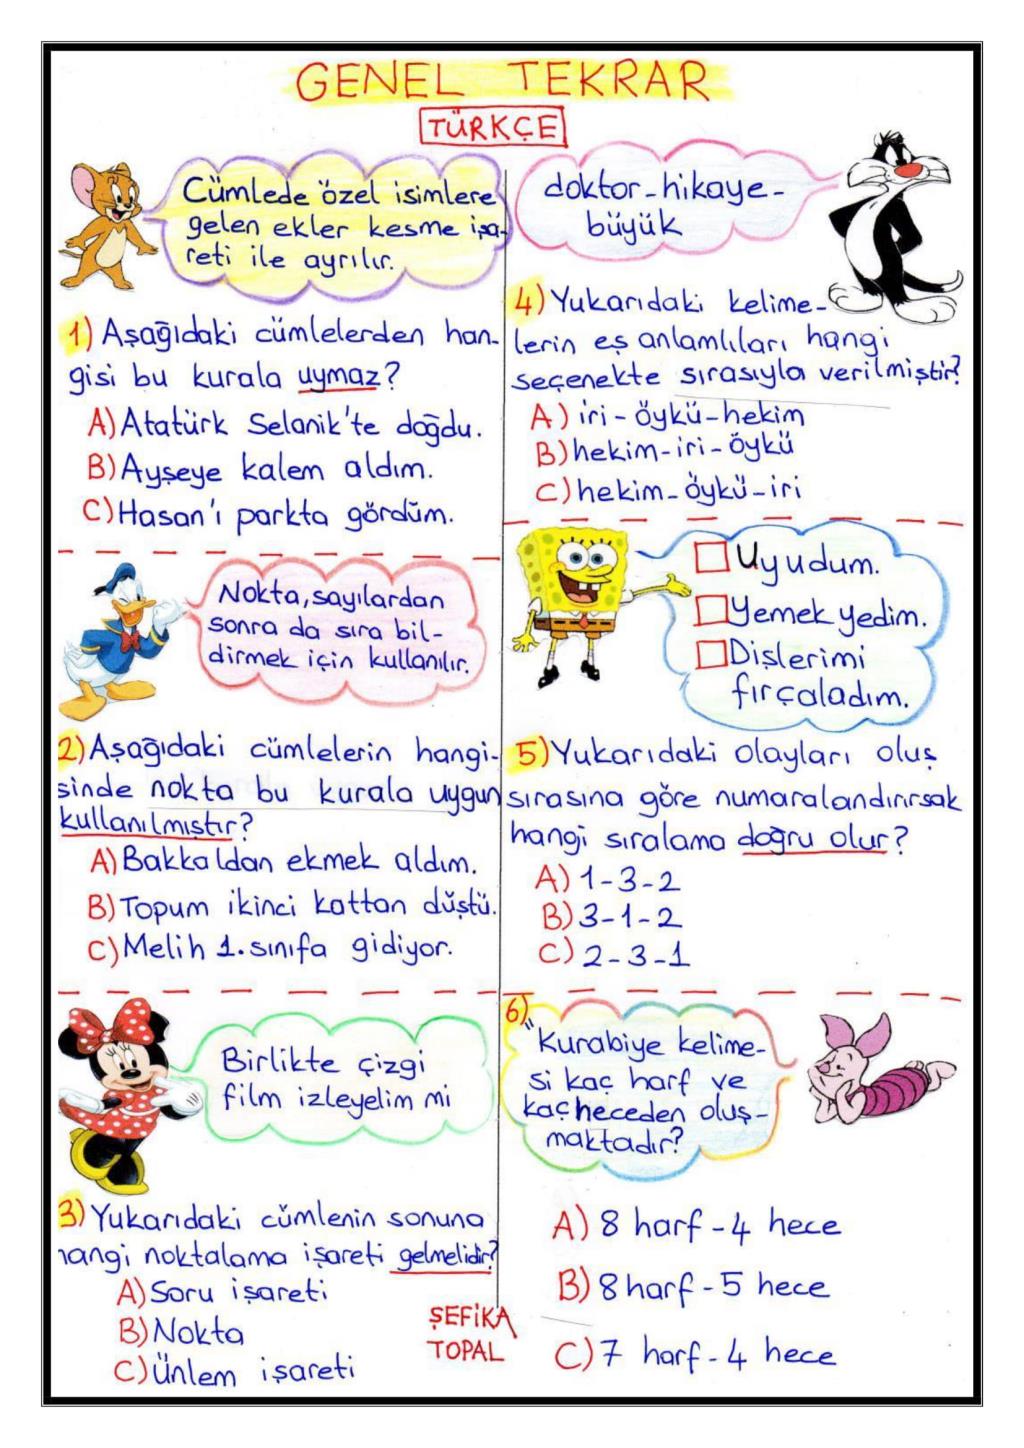 GENEL TEKRAR
TÜRKÇE
Cümlede özel isimlere
gelen ekler kesme işa-
reti ile ayrılır.
1) Aşağıdaki cümlelerden han-
gisi bu kurala uymaz?
A) Atatürk Selanik'te doğdu.
B) Ayşeye kalem aldım.
C) Hasan'ı parkta gördüm.
Nokta, sayılardan
sonra da sıra bil-
dirmek için kullanılır.
2) Aşağıdaki cümlelerin hangi-
sinde nokta bu kurala uygun
kullanılmıştır?
A) Bakkaldan ekmek aldım.
B) Topum ikinci kattan düştü.
C) Melih 1. sınıfa gidiyor.
Birlikte çizgi
film izleyelim mi
3) Yukarıdaki cümlenin sonuna
hangi noktalama işareti gelmelidir?
A) Soru işareti
B) Nokta
C) Ünlem işareti
ŞEFİKA
TOPAL
doktor-hikaye-
büyük
4) Yukarıdaki kelime-
lerin eş anlamlıları hangi
seçenekte sırasıyla verilmiştir?
A) iri - öykü - hekim
B) hekim - iri - öykü
C) hekim - öykü - iri
Uyudum.
Yemek yedim.
Dişlerimi
fırçaladım.
5) Yukarıdaki olayları oluş
sırasına göre numaralandırırsak
hangi sıralama doğru olur?
A) 1-3-2
B) 3-1-2
C) 2-3-1
6)
"Kurabiye kelime-
si kaç harf ve
kaç heceden oluş-
maktadır?
A) 8 harf - 4 hece
B) 8 harf - 5 hece
C) 7 harf - 4 hece